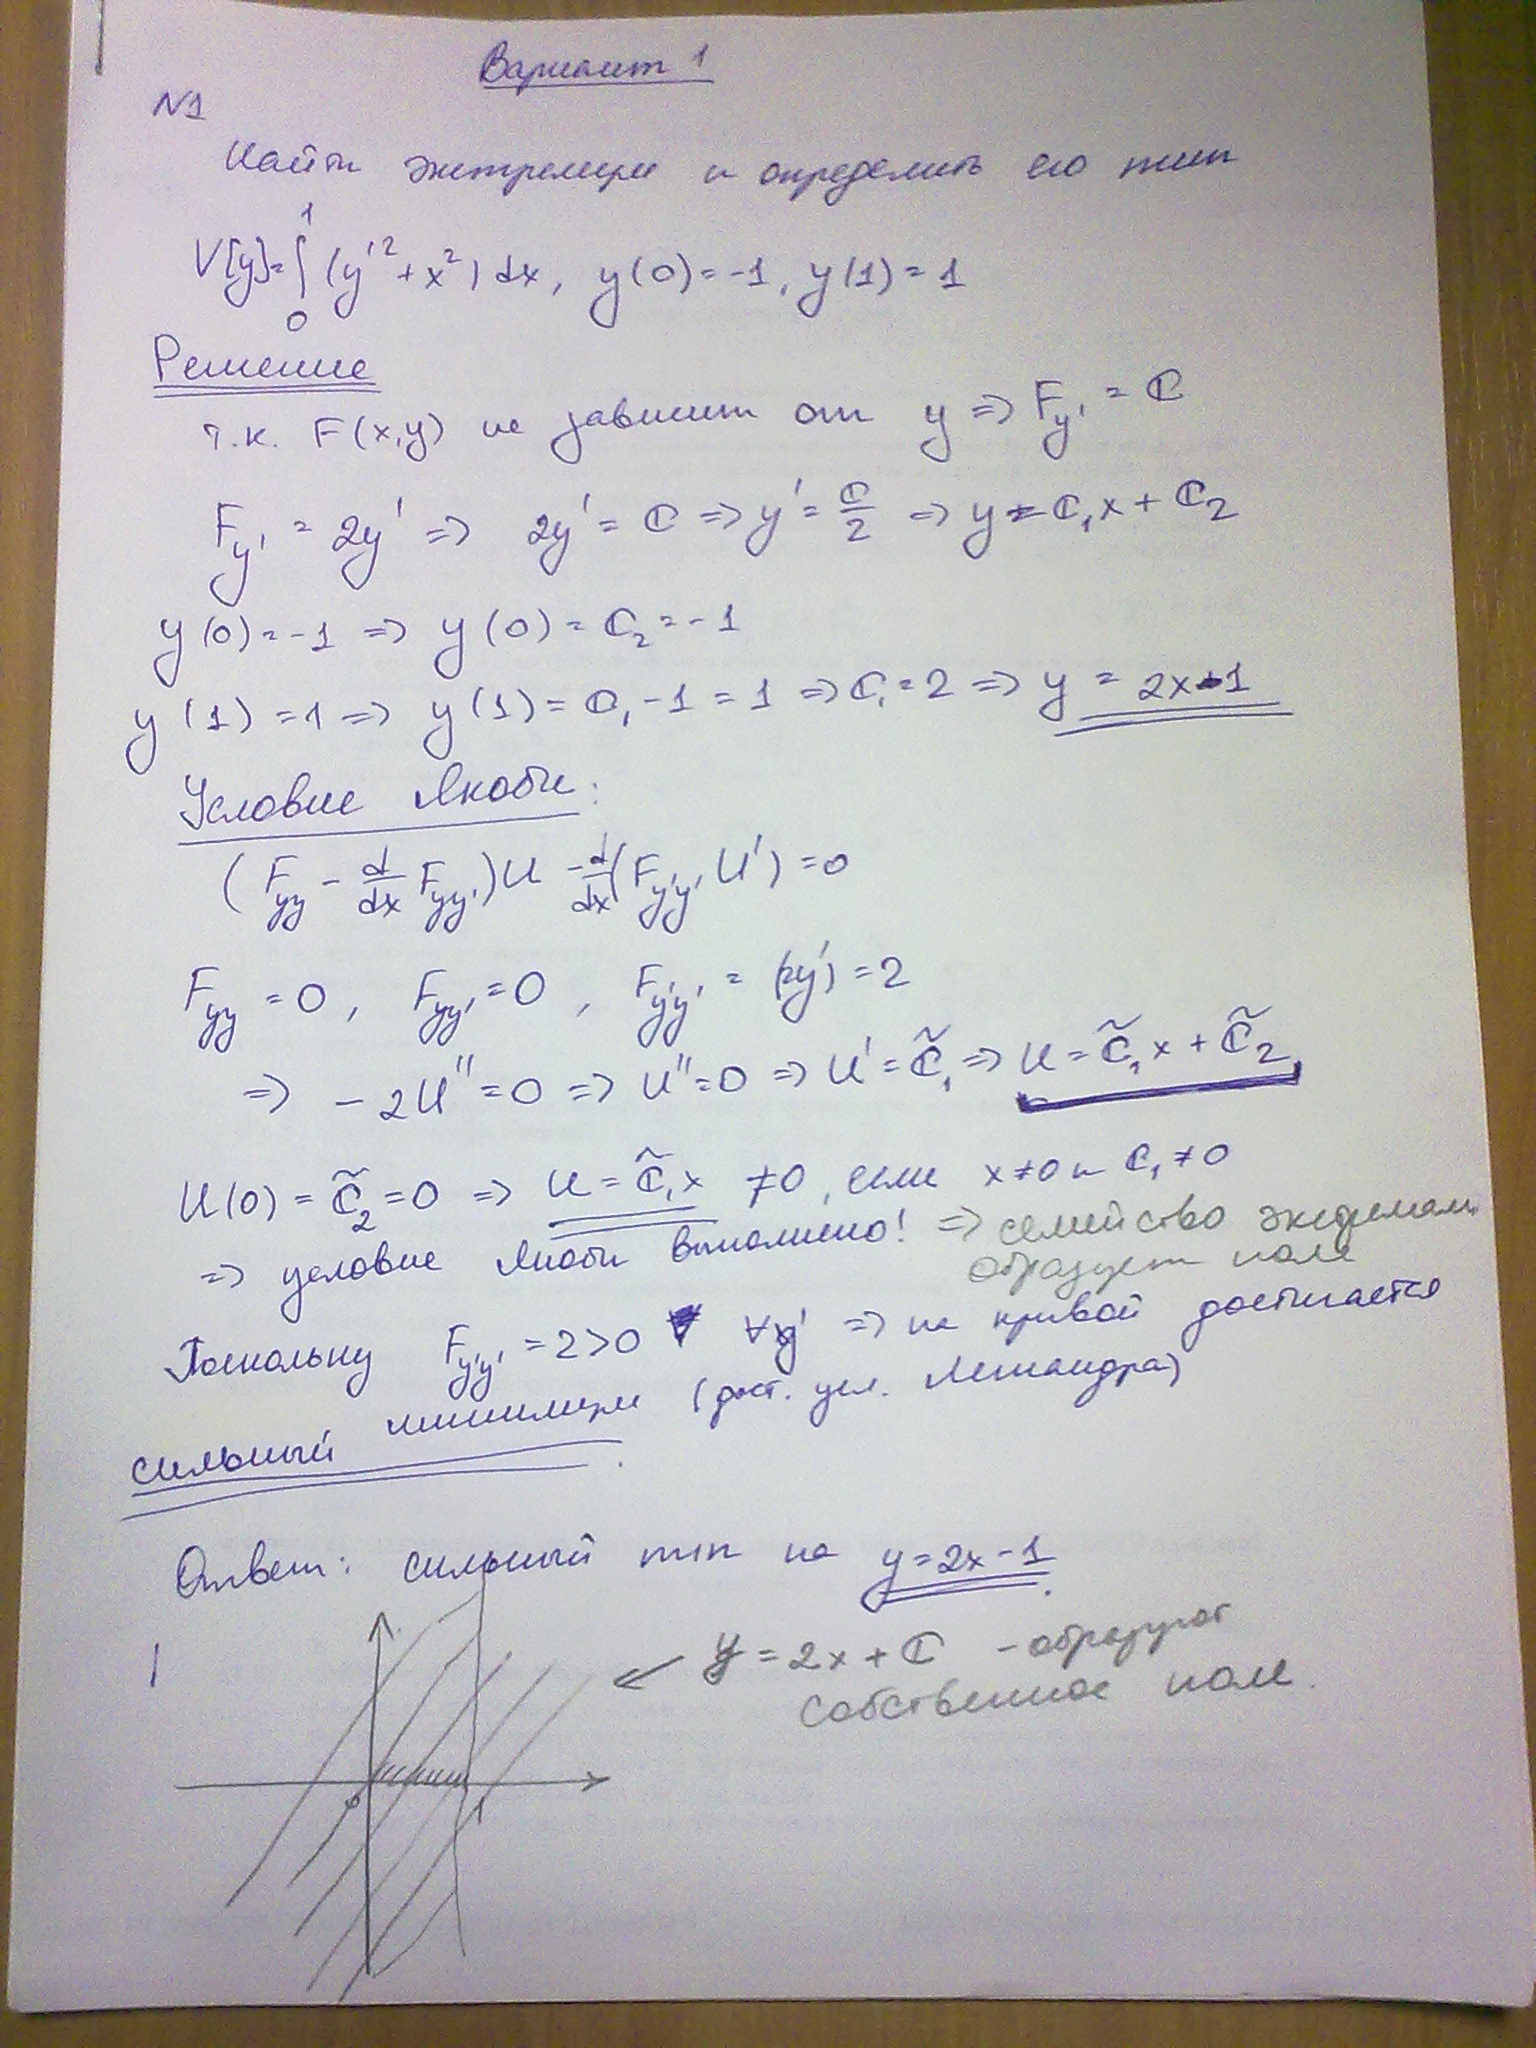 Вариант 1
N1
Найти экстремум и определить его тип
V[y]=∫₀¹(y'²+x²)dx, y(0)=-1, y(1)=1
Решение
т.к. F(x,y) не зависит от y => F_y' = C
F_y' = 2y' => 2y' = C => y' = C/2 => y = C₁x + C₂
y(0)=-1 => y(0) = C₂ = -1
y(1)=1 => y(1) = C₁-1 = 1 => C₁=2 => y = 2x-1
Условие Якоби:
(F_yy - d/dx F_yy')U - d/dx(F_y'y' U') = 0
F_yy = 0, F_yy' = 0, F_y'y' = (2y') = 2
=> -2U'' = 0 => U'' = 0 => U' = C̃₁ => U = C̃₁x + C̃₂
U(0) = C̃₂ = 0 => U = C̃₁x ≠ 0, если x≠0 и C₁≠0
=> условие Якоби выполнено! => семейство экстремалей
образует поле
Поскольку F_y'y' = 2 > 0 ∀y' => на кривой достигается
сильный минимум (дост. усл. Лежандра)
Ответ: сильный min на y=2x-1.
y = 2x + C - образуют
собственное поле.
0 1